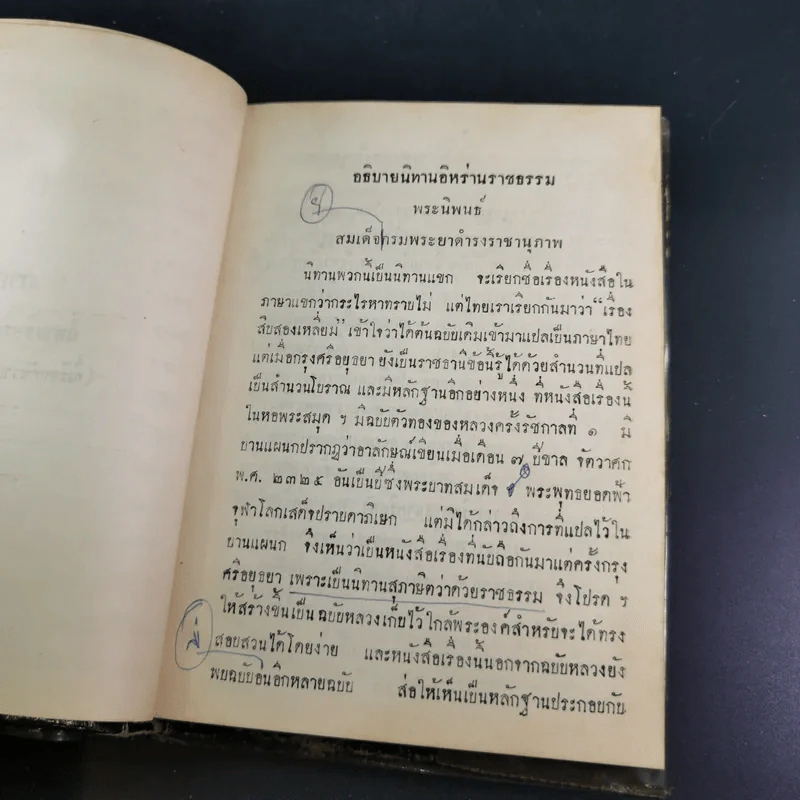 อธิบายนิทานอิหร่านราชธรรม
พระนิพนธ์
สมเด็จกรมพระยาดำรงราชานุภาพ
นิทานพวกนี้เป็นนิทานแขก จะเรียกชื่อเรื่องหนังสือใน
ภาษาแขกว่ากระไรหาทราบไม่ แต่ไทยเราเรียกกันมาว่า “เรื่อง
สิบสองเหลี่ยม” เข้าใจว่าได้ต้นฉบับเดิมเข้ามาแปลเป็นภาษาไทย
แต่เมื่อกรุงศรีอยุธยา ยังเป็นราชธานีข้อนี้รู้ได้ด้วยสำนวนที่แปล
เป็นสำนวนโบราณ และมีหลักฐานอีกอย่างหนึ่ง ที่หนังสือเรื่องนี้
ในหอพระสมุด ฯ มีฉบับตัวทองของหลวงครั้งรัชกาลที่ ๑ มี
บานแผนกปรากฏว่าอาลักษณ์เขียนเมื่อเดือน ๗ ปีขาล จัตวาศก
พ.ศ. ๒๓๒๕ อันเป็นปีซึ่งพระบาทสมเด็จ ๆ พระพุทธยอดฟ้า
จุฬาโลกเสด็จปราบดาภิเษก แต่มิได้กล่าวถึงการที่แปลไว้ใน
บานแผนก จึงเห็นว่าเป็นหนังสือเรื่องที่นับถือกันมาแต่ครั้งกรุง
ศรีอยุธยา เพราะเป็นนิทานสุภาษิตว่าด้วยราชธรรม จึงโปรด ฯ
ให้สร้างขึ้นเป็นฉบับหลวงเก็บไว้ใกล้พระองค์สำหรับจะได้ทรง
สอบสวนได้โดยง่าย และหนังสือเรื่องนี้นอกจากฉบับหลวงยัง
พบฉบับอื่นอีกหลายฉบับ ส่อให้เห็นเป็นหลักฐานประกอบกับ